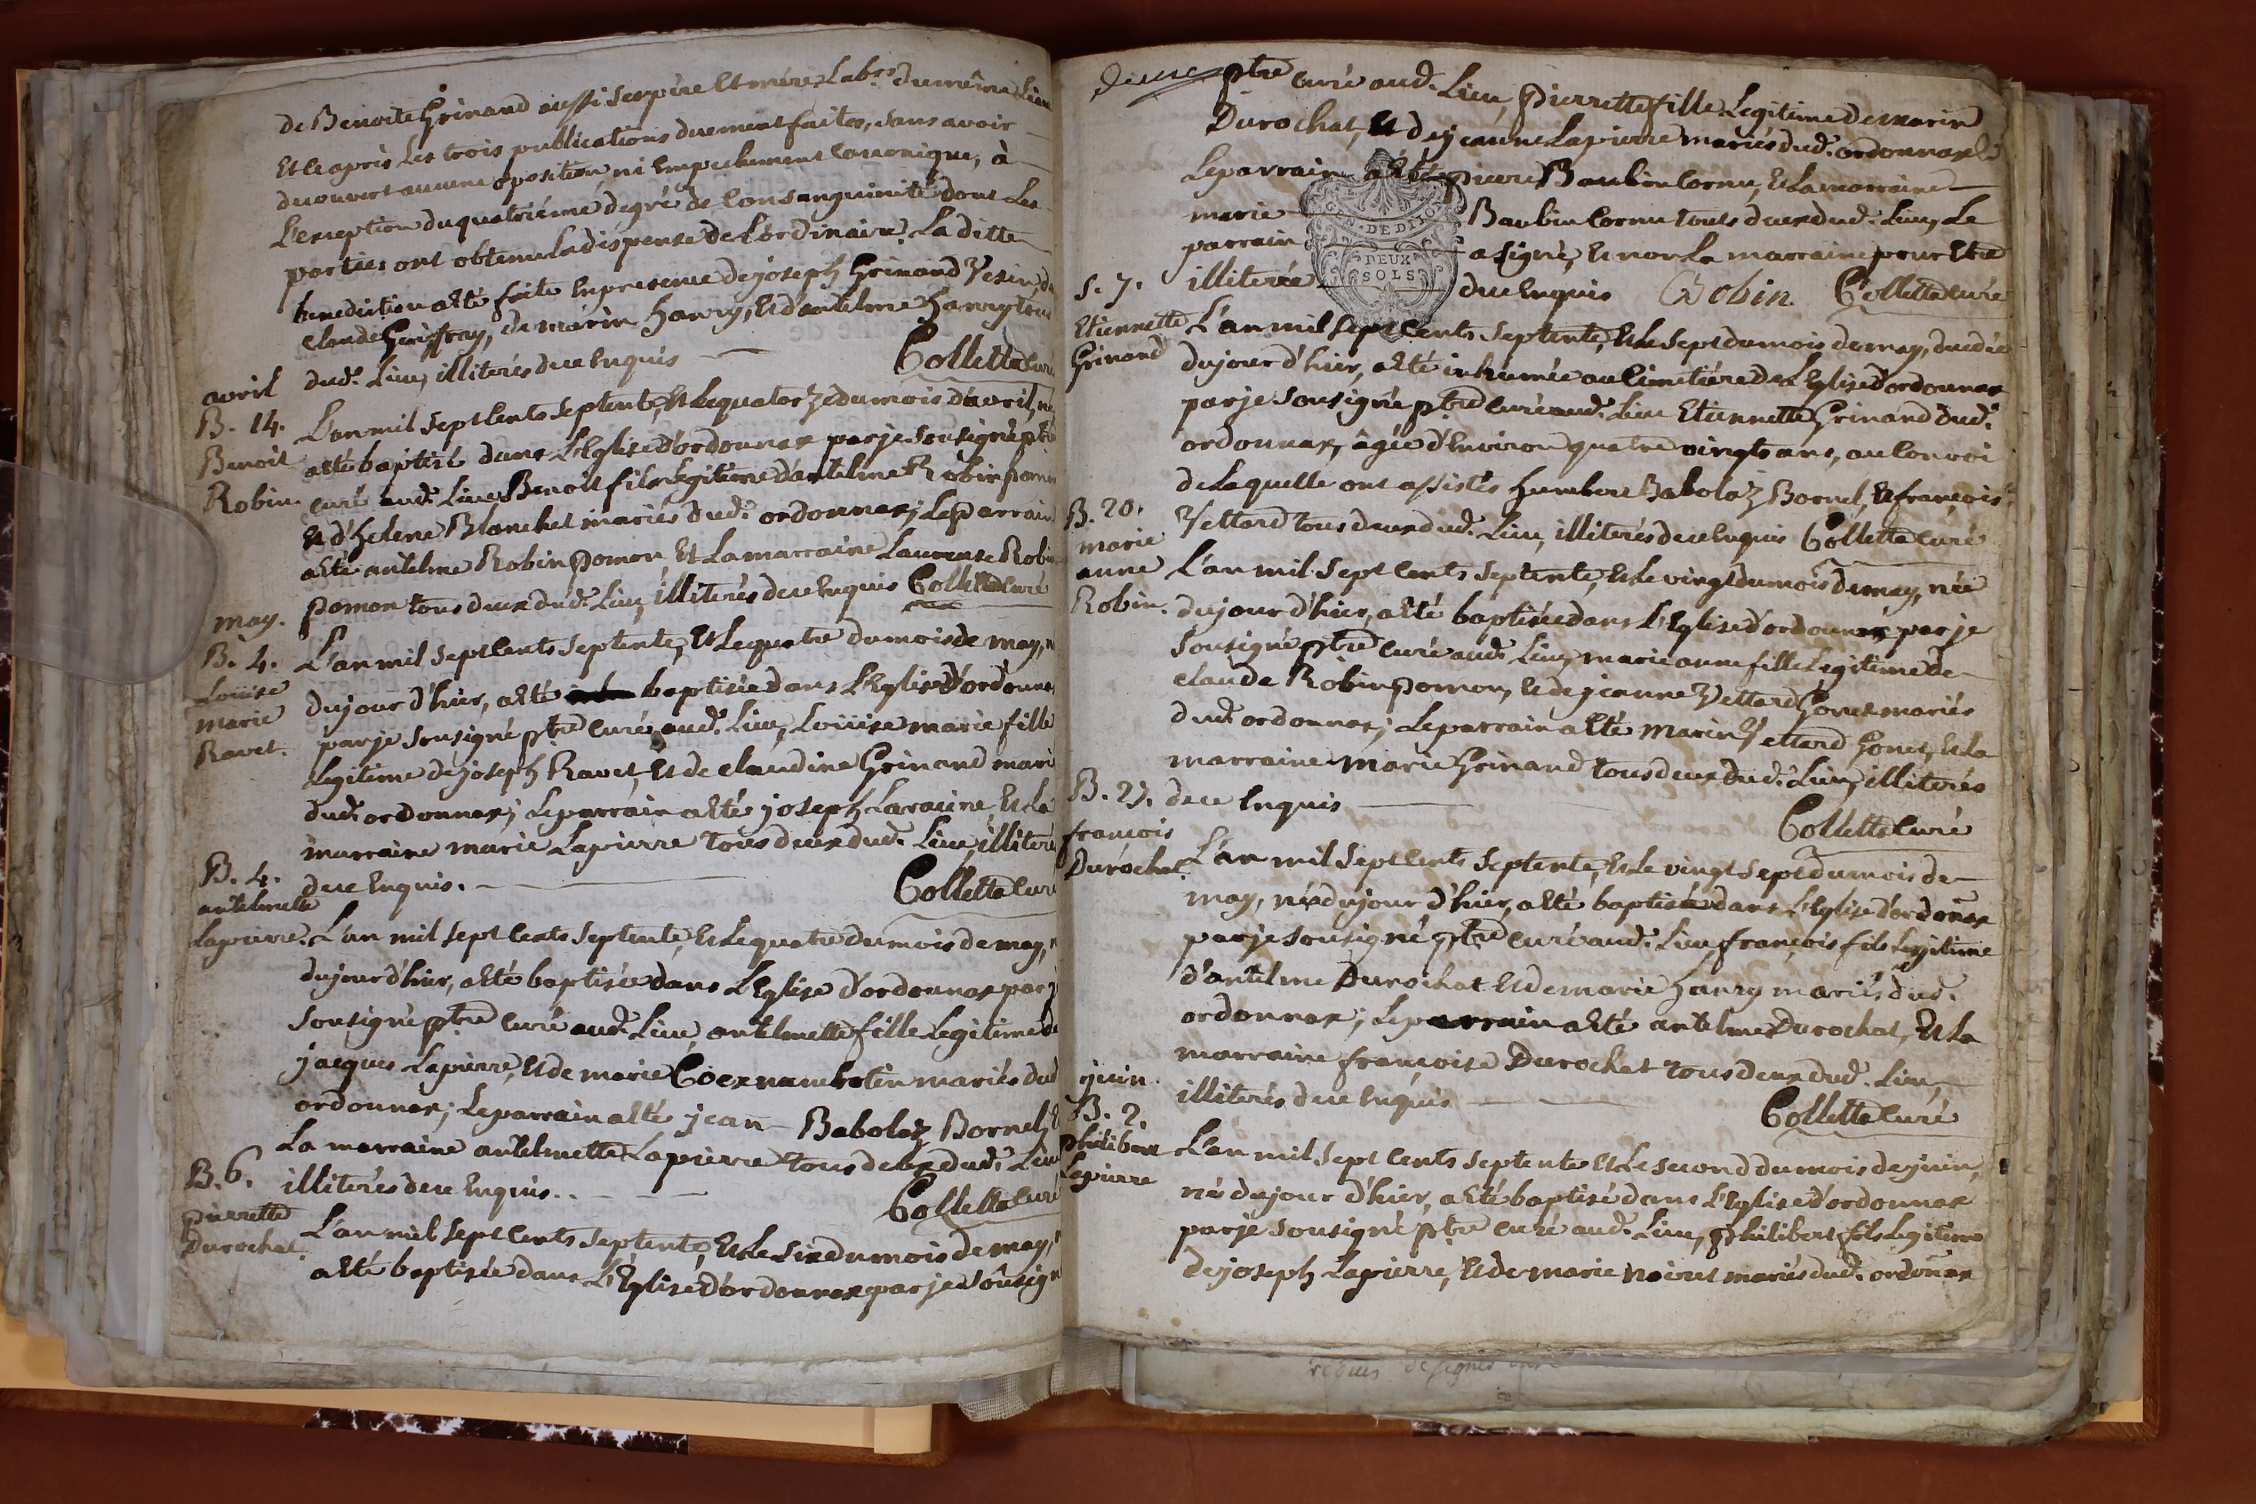 de Benoite Grinand aussi ses père Et mère, Lab.rs du même Lieu
Et ce après Les trois publications duement faites, sans avoir
decouvert aucune oposition, ni Empechement Canonique, à
L'exception du quatriéme degré de Consanguinité dont Les
parties ont obtenu La dispense de L'ordinaire. La ditte
benediction a Eté faite En presence de joseph Grinand
Claude Geoffray, de marin hanry, Et d'antelme hanry tous
dud.t Lieu, illiterés de ce Enquis
Collettaz Curé
avril
B. 14.
Benoit
Robin.
L'an mil sept Cents septente, Et Le quatorze du mois d'avril, né
a Eté baptisé dans L'Eglise d'ordonnax par je sousigné ptre
curé aud.t Lieu Benoit fils Legitime d'antelme Robin pomon
Et d'helene Blanchet mariés dud.t ordonnax; Le parrain
a Eté antelme Robin pomon, Et La marraine Laurense Robin
pomon tous deux dud.t Lieu, illiterés de ce Enquis Collettaz Curé
may.
B. 4.
Loüise
marie
Ravet.
L'an mil sept Cents septente, Et Le quatre du mois de may,
du jour d'hier, a Eté baptisée dans L'Eglise d'ordonnax
par je sousigné ptre Curé aud.t Lieu, Loüise marie fille
Legitime de joseph Ravet, Et de claudine Grinand mari
dud.t ordonnax; Le parrain a Eté joseph Laracine, Et La
marraine marie Lapierre tous deux dud.t Lieu, illiteré
de ce Enquis.
Collettaz Curé
B. 4.
antelmette
Lapierre.
L'an mil sept Cents septente, Et Le quatre du mois de may,
du jour d'hier, a Eté baptisée dans L'Eglise d'ordonnax par j
sousigné ptre Curé aud.t Lieu, antelmette fille Legitime de
jacques Lapierre, Et de marie mariés dud
ordonnax; Le parrain a Eté jean Babolaz Bornel, E
La marraine antelmette Lapierre tous deux dud.t Lieu
illiterés de ce Enquis.
Collettaz Curé
B. 6.
pierrette
Durochat.
L'an mil sept Cents septente, Et Le six du mois de may,
a Eté baptisée dans L'Eglise d'ordonnax par je sousign
ptre Curé aud.t Lieu, pierrette fille Legitime de marin
Durochat, Et de jeanne Lapierre mariés dud.t ordonnax
Le parrain a Eté pierre Baubin Cornu, Et La marraine
marie Baubin Cornu touts deux dud.t Lieu, Le
parrain a signé, Et non La marraine pour Etre
illiterée de ce Enquis Bobin. Collettaz Curé
GEN. DE DIJON
DEUX
SOLS
S. 7.
Etiennette
Grinand
L'an mil sept Cents septente, Et Le sept du mois de may, decedée
du jour d'hier, a Eté inhumée au Cimetière de L'Eglise d'ordonnax
par je sousigné ptre Curé aud.t Lieu Etiennette Grinand dud.t
ordonnax, âgée d'Environ quatre vingts ans, au Convoi
de Laquelle ont assistés humbert Babolaz Bornel, Et françois
Vettard tous deux dud.t Lieu, illiterés de ce Enquis Collettaz Curé
B. 20.
marie
anne
Robin.
L'an mil sept Cents septente, Et Le vingt du mois de may, née
du jour d'hier, a Eté baptisée dans L'Eglise d'ordonnax par je
sousigné ptre Curé aud.t Lieu, marie anne fille Legitime de
claude Robin pomon, Et de jeanne Vettard Gonet mariés
dud.t ordonnax; Le parrain a Eté marin Vettard Gonet, Et La
marraine marie Grinand tous deux dud.t Lieu, illiterés
de ce Enquis
Collettaz Curé
B. 27.
françois
Durochat.
L'an mil sept Cents septente, Et Le vingt sept du mois de
may, né du jour d'hier, a Eté baptisé dans L'Eglise d'ordonax
par je sousigné ptre Curé aud.t Lieu, françois fils Legitime
d'antelme Durochat Et de marie hanry mariés dud.t
ordonnax; Le parrain a Eté antelme Durochat, Et La
marraine françoise Durochat tous deux dud.t Lieu,
illiterés de ce Enquis
Collettaz Curé
juin.
B. 2.
philibert
Lapierre
L'an mil sept Cents septente Et Le second du mois de juin,
né du jour d'hier, a Eté baptisé dans L'Eglise d'ordonnax
par je sousigné ptre Curé aud.t Lieu, philibert fils Legitime
de joseph Lapierre, Et de marie noiret mariés dud.t ordonax